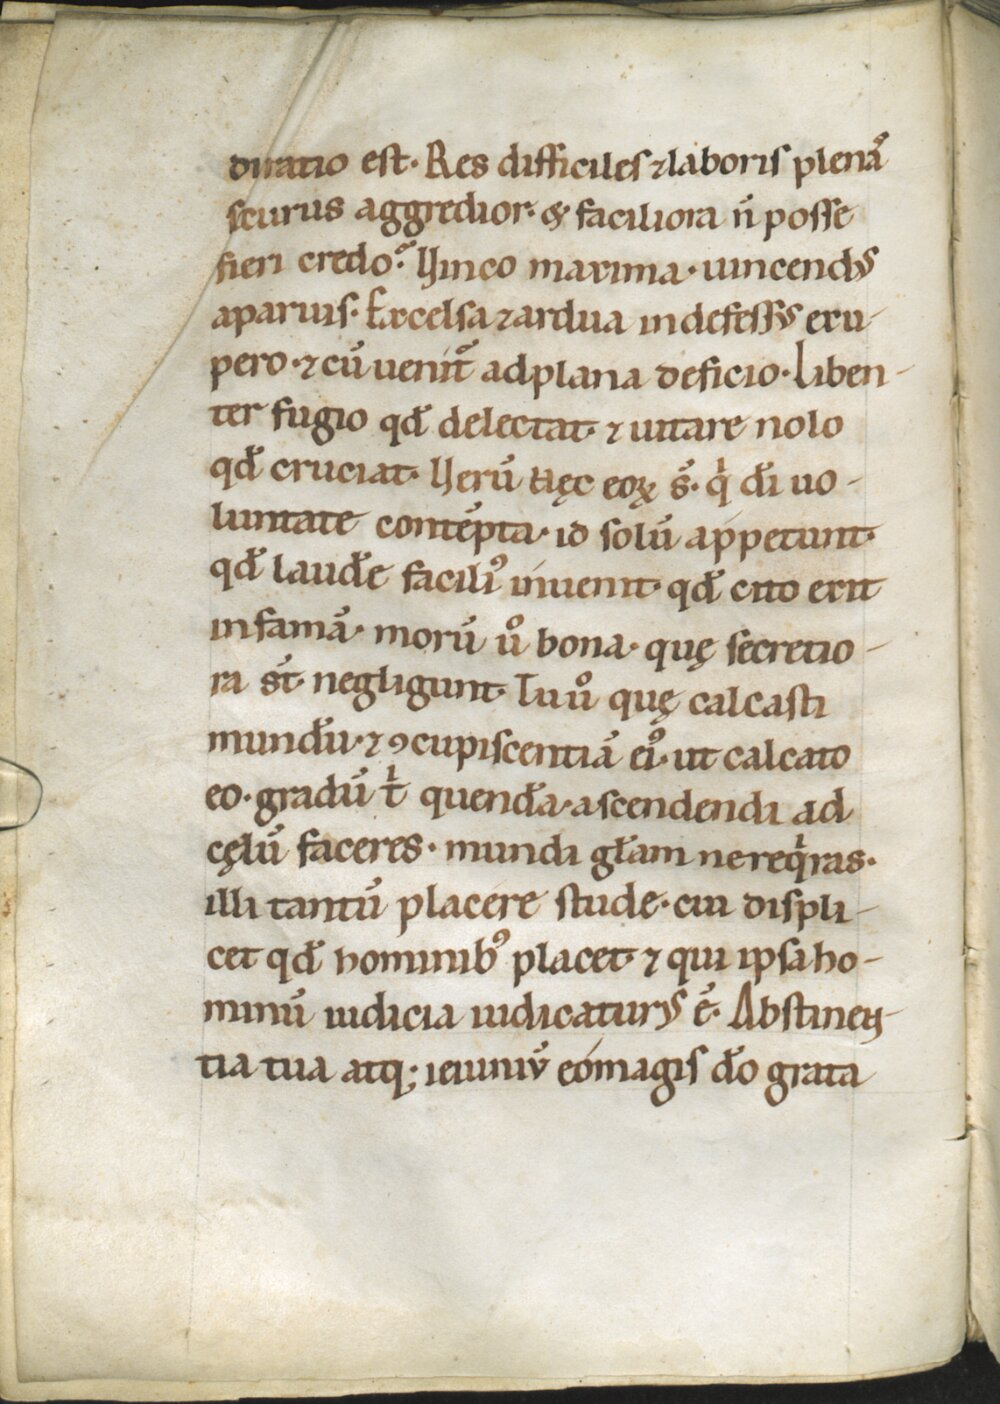 diratio est· Res difficiles ⁊ laboris plenā
scurus aggredior· & faciliora ñ posse
fieri credo? Vinco maxima· uincendus
a paruis· Excelsa ⁊ ardua indefessus exu-
pero· ⁊ cū uenit᷑ ad plana deficio· Liben-
ter fugio qđ delectat· ⁊ uitare nolo
qđ cruciat· Verū hęc eoꝝ s̄· qⁱ đi uo-
luntate contēpta· id solū appetunt·
qđ laudē faciliꝰ inuenit· qđ cito exit
in famā· morū ů bona· quę secretio-
ra st̄ negligunt· Tu ů quę calcasti
mundū· ⁊ ꝯcupiscentiā eiꝰ· ut calcato
eo· gradū tⁱ quendā· ascendendi ad
cęlū faceres· mundi głam ne reqⁱras·
illi tantū placere stude· cui displi-
cet qđ hominibꝰ placet· ⁊ qui ipsa ho-
minū iudicia iudicaturus ē· Abstinen-
tia tua atq; ieiuniū eo magis đo grata